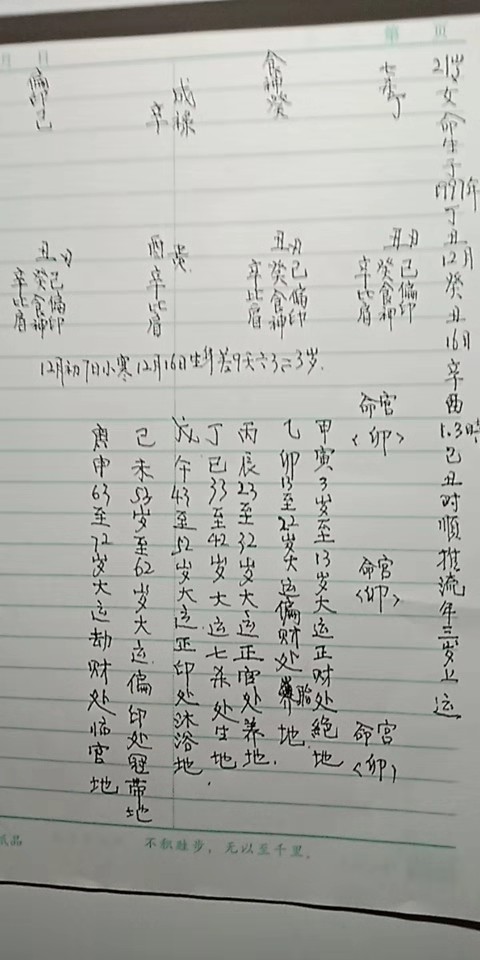 月 日
第 页
21岁女命生于1997年丁丑12月癸丑16日辛酉1.3時己丑时順推流年三岁上运
七杀丁
食神癸
成禄
辛
偏印己
丑月
己偏印
癸食神
辛比肩
丑月
己偏印
癸食神
辛比肩
酉
辛比肩
丑月
己偏印
癸食神
辛比肩
12月初7日小寒12月16日生
命宫
<卯>
命宫
<卯>
命宫
<卯>
甲寅3岁至13岁大运正财处絕地
乙卯13至22岁大运偏财处胎地.
丙辰23至32岁大运正官处养地.
丁巳33至42岁大运七杀处生地.
戊午43至52岁大运正印处沐浴地
己未53岁至62岁大运偏印处冠带地
庚申63至72岁大运劫财处临官地
纸品
不积跬步，无以至千里。